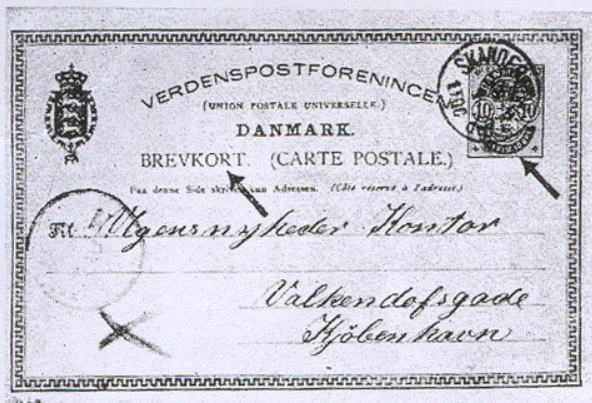 VERDENSPOSTFORENINGEN
(UNION POSTALE UNIVERSELLE.)
DANMARK.
BREVKORT. (CARTE POSTALE.)
Paa denne Side skrives kun Adressen. (Côté réservé à l'adresse.)
SKANDER
10 10
Til Ulgensnyheder Kontor
Valkendofsgade
Kjöbenhavn